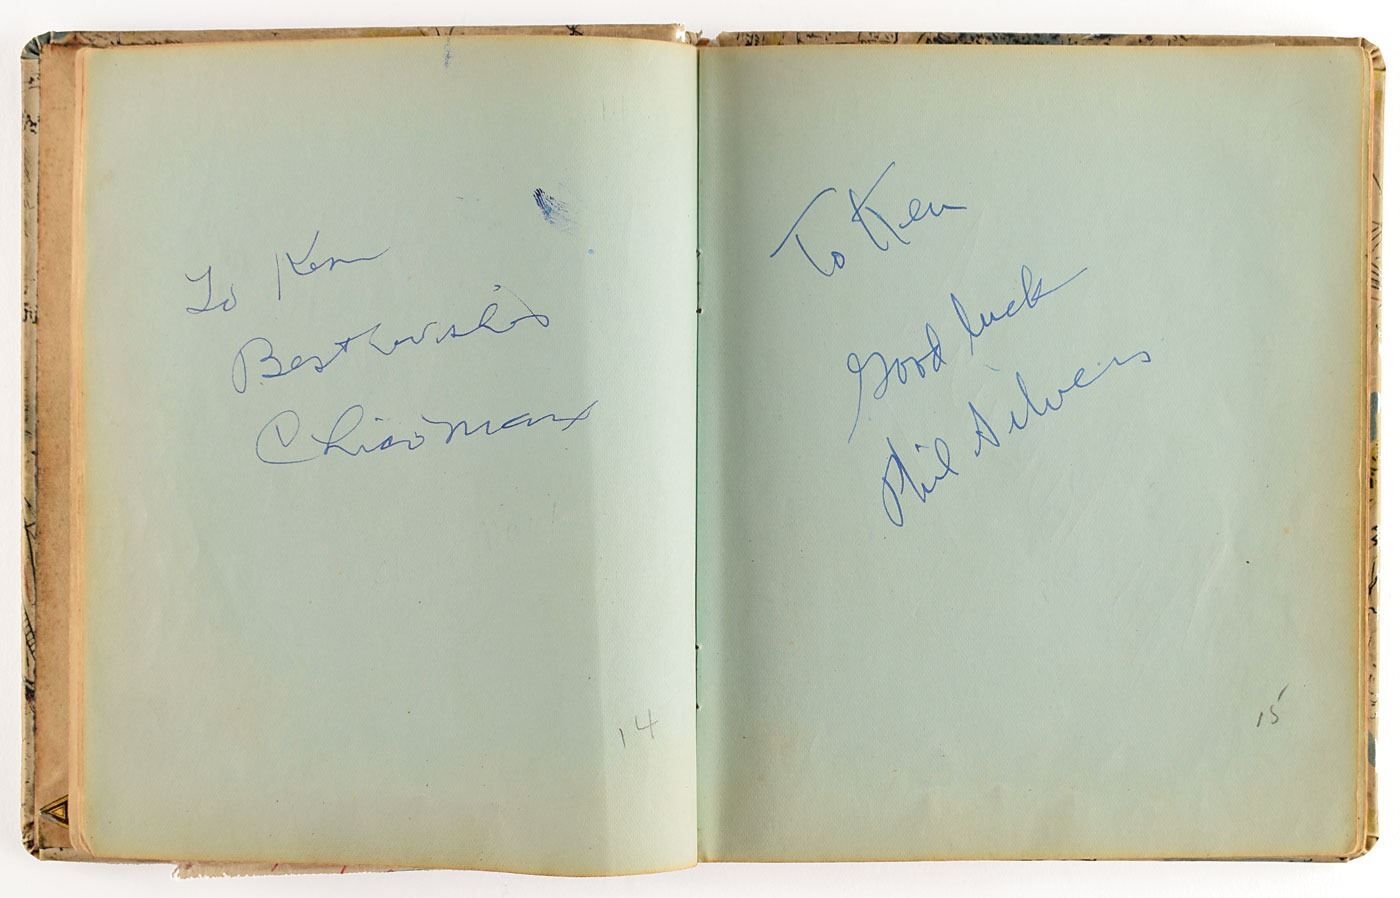 To Ken
Best wishes
Chico Marx
14
To Ken
Good luck
Phil Silvers
15